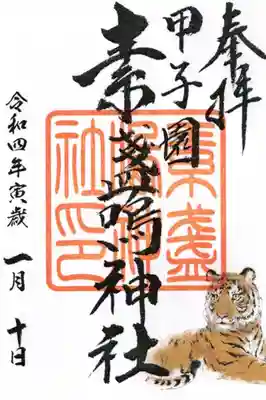 奉拝
甲子園
素盞嗚神社
令和四年寅歳 一月 十日
素盞
社印